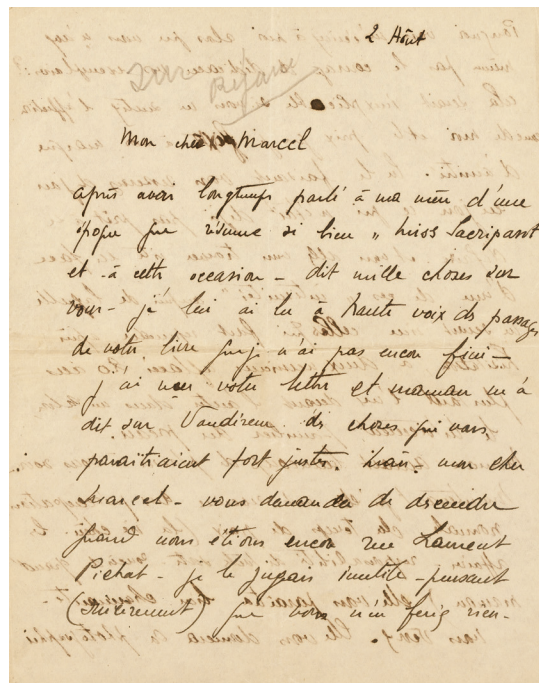 2 Août
sur Réjane
Mon cher Marcel
après avoir longtemps parlé à ma mère d'une
époque que résume si bien " Miss Sacripant
et - à cette occasion - dit mille choses sur
vous - je lui ai lu à haute voix des passages
de votre livre que je n'ai pas encore fini -
j'ai reçu votre lettre et maman m'a
dit sur Vaudireux des choses qui vous
paraitraient fort justes. mon cher
Marcel - vous demander de descendre
quand nous étions encore rue Laurent
Pichat - je le jugeais inutile - pensant
(sincèrement) que vous n'en feriez rien -